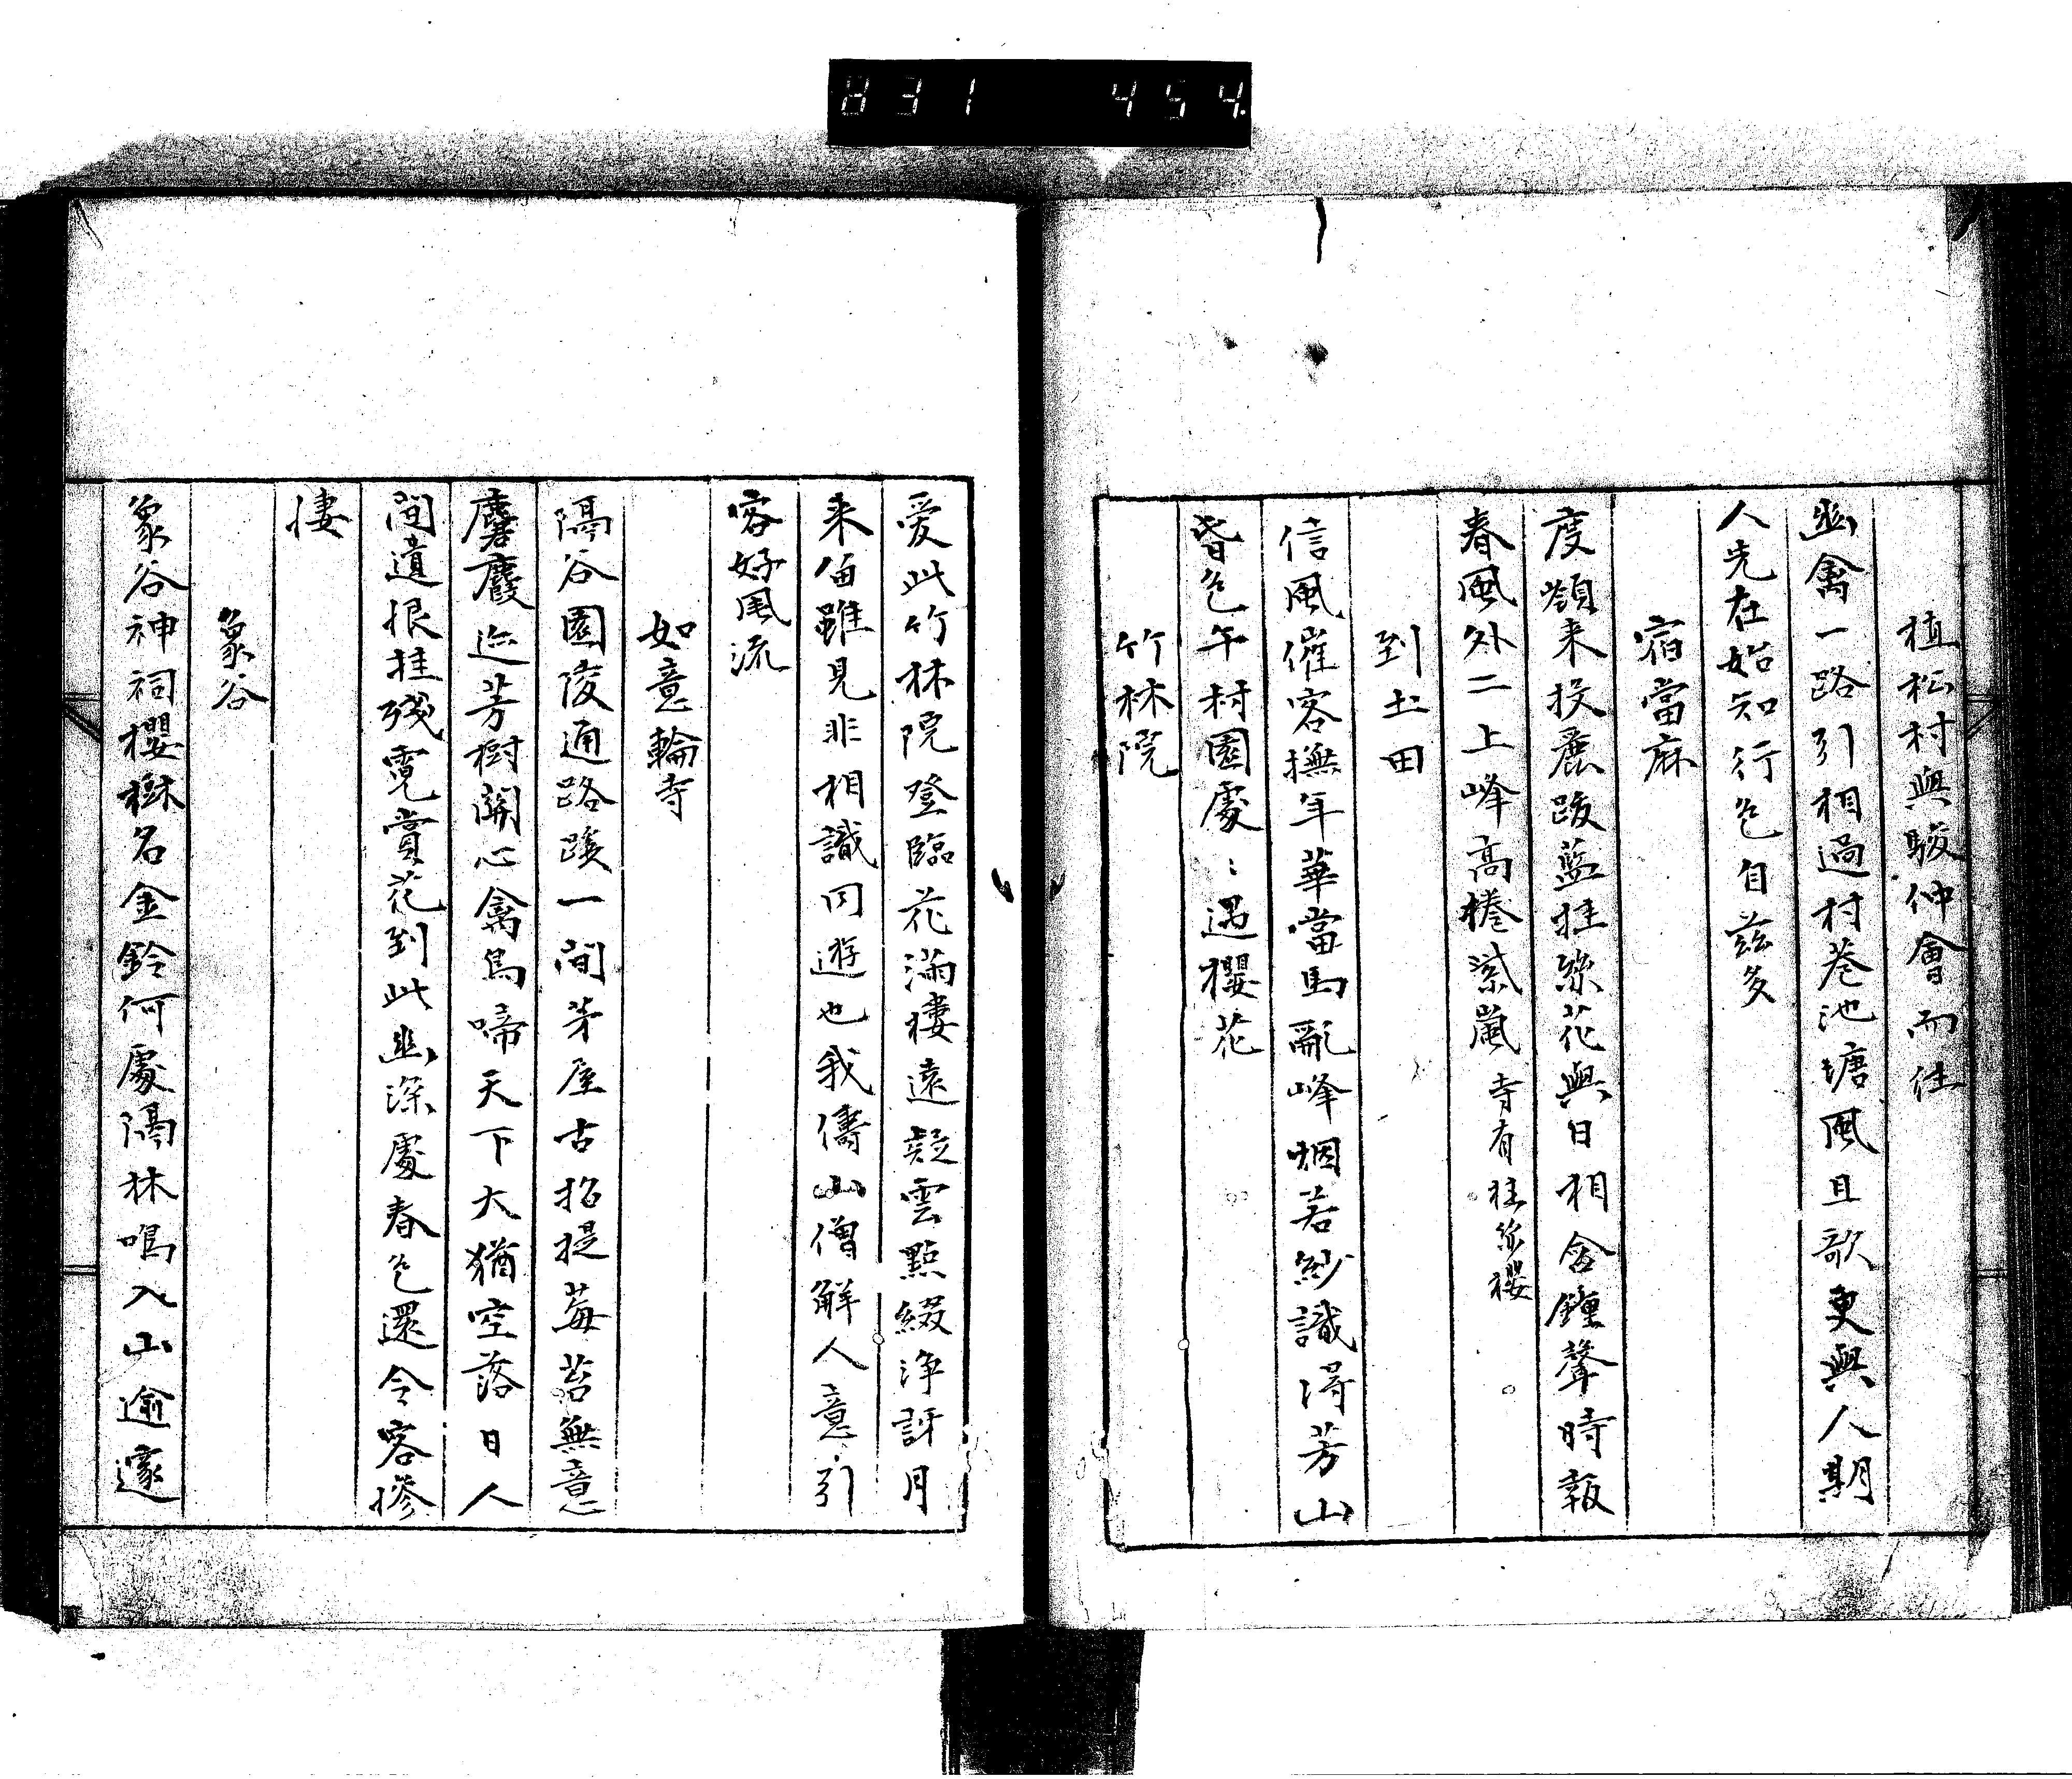 831 454
植松村與駿仲會而住
幽禽一路引相過村巷池塘風且歌更與人期
人先在始知行色自茲多
宿當麻
度嶺来投麗跂藍挂絲花與日相含鐘聲時報
春風外二上峰高捲紫嵐 寺有挂絲櫻
到土田
信風催客撫年華當馬亂峰烟若紗識得芳山
昏色午村園處〻遇櫻花
竹林院
爱此竹林院登臨花滿樓遠疑雲點綴浄訝月
来留雖見非相識同遊也我儔山僧解人意引
客好風流
如意輪寺
隔谷園陵通路蹊一間茅屋古招提莓苔無意
麕麚迹芳樹關心禽鳥啼天下大猶空落日人
間遺恨挂殘霓賞花到此幽深處春色還令客慘
悽
象谷
象谷神祠櫻樹名金鈴何處隔林鳴入山逾邃